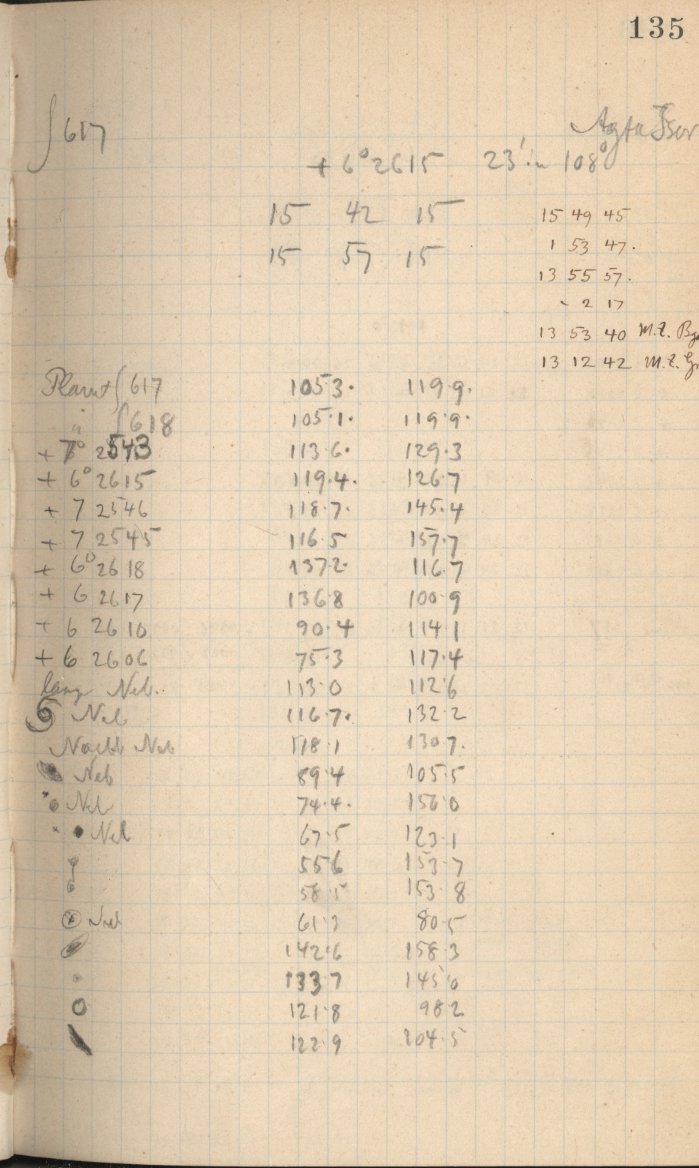 135
∫617
+ 6° 2615 23' in 108°
15 42 15
15 57 15
15 49 45
1 53 47.
13 55 57.
- 2 17
13 53 40 M.Z.
13 12 42 M.Z.
Planet ∫617 105.3. 119.9.
" ∫618 105.1. 119.9.
+ 7° 2543 113.6. 129.3
+ 6° 2615 119.4. 126.7
+ 7 2546 118.7. 145.4
+ 7 2545 116.5 157.7
+ 6° 2618 137.2. 116.7
+ 6 2617 136.8 100.9
+ 6 2610 90.4 114.1
+ 6 2606 75.3 117.4
lang Neb. 113.0 112.6
Neb 116.7. 132.2
Nachb Neb 118.1 130.7.
Neb 89.4 105.5
Neb 74.4. 156.0
Neb 67.5 123.1
55.6 153.7
58.5 153.8
Neb 61.3 80.5
142.6 158.3
133.7 145.0
121.8 98.2
122.9 104.5